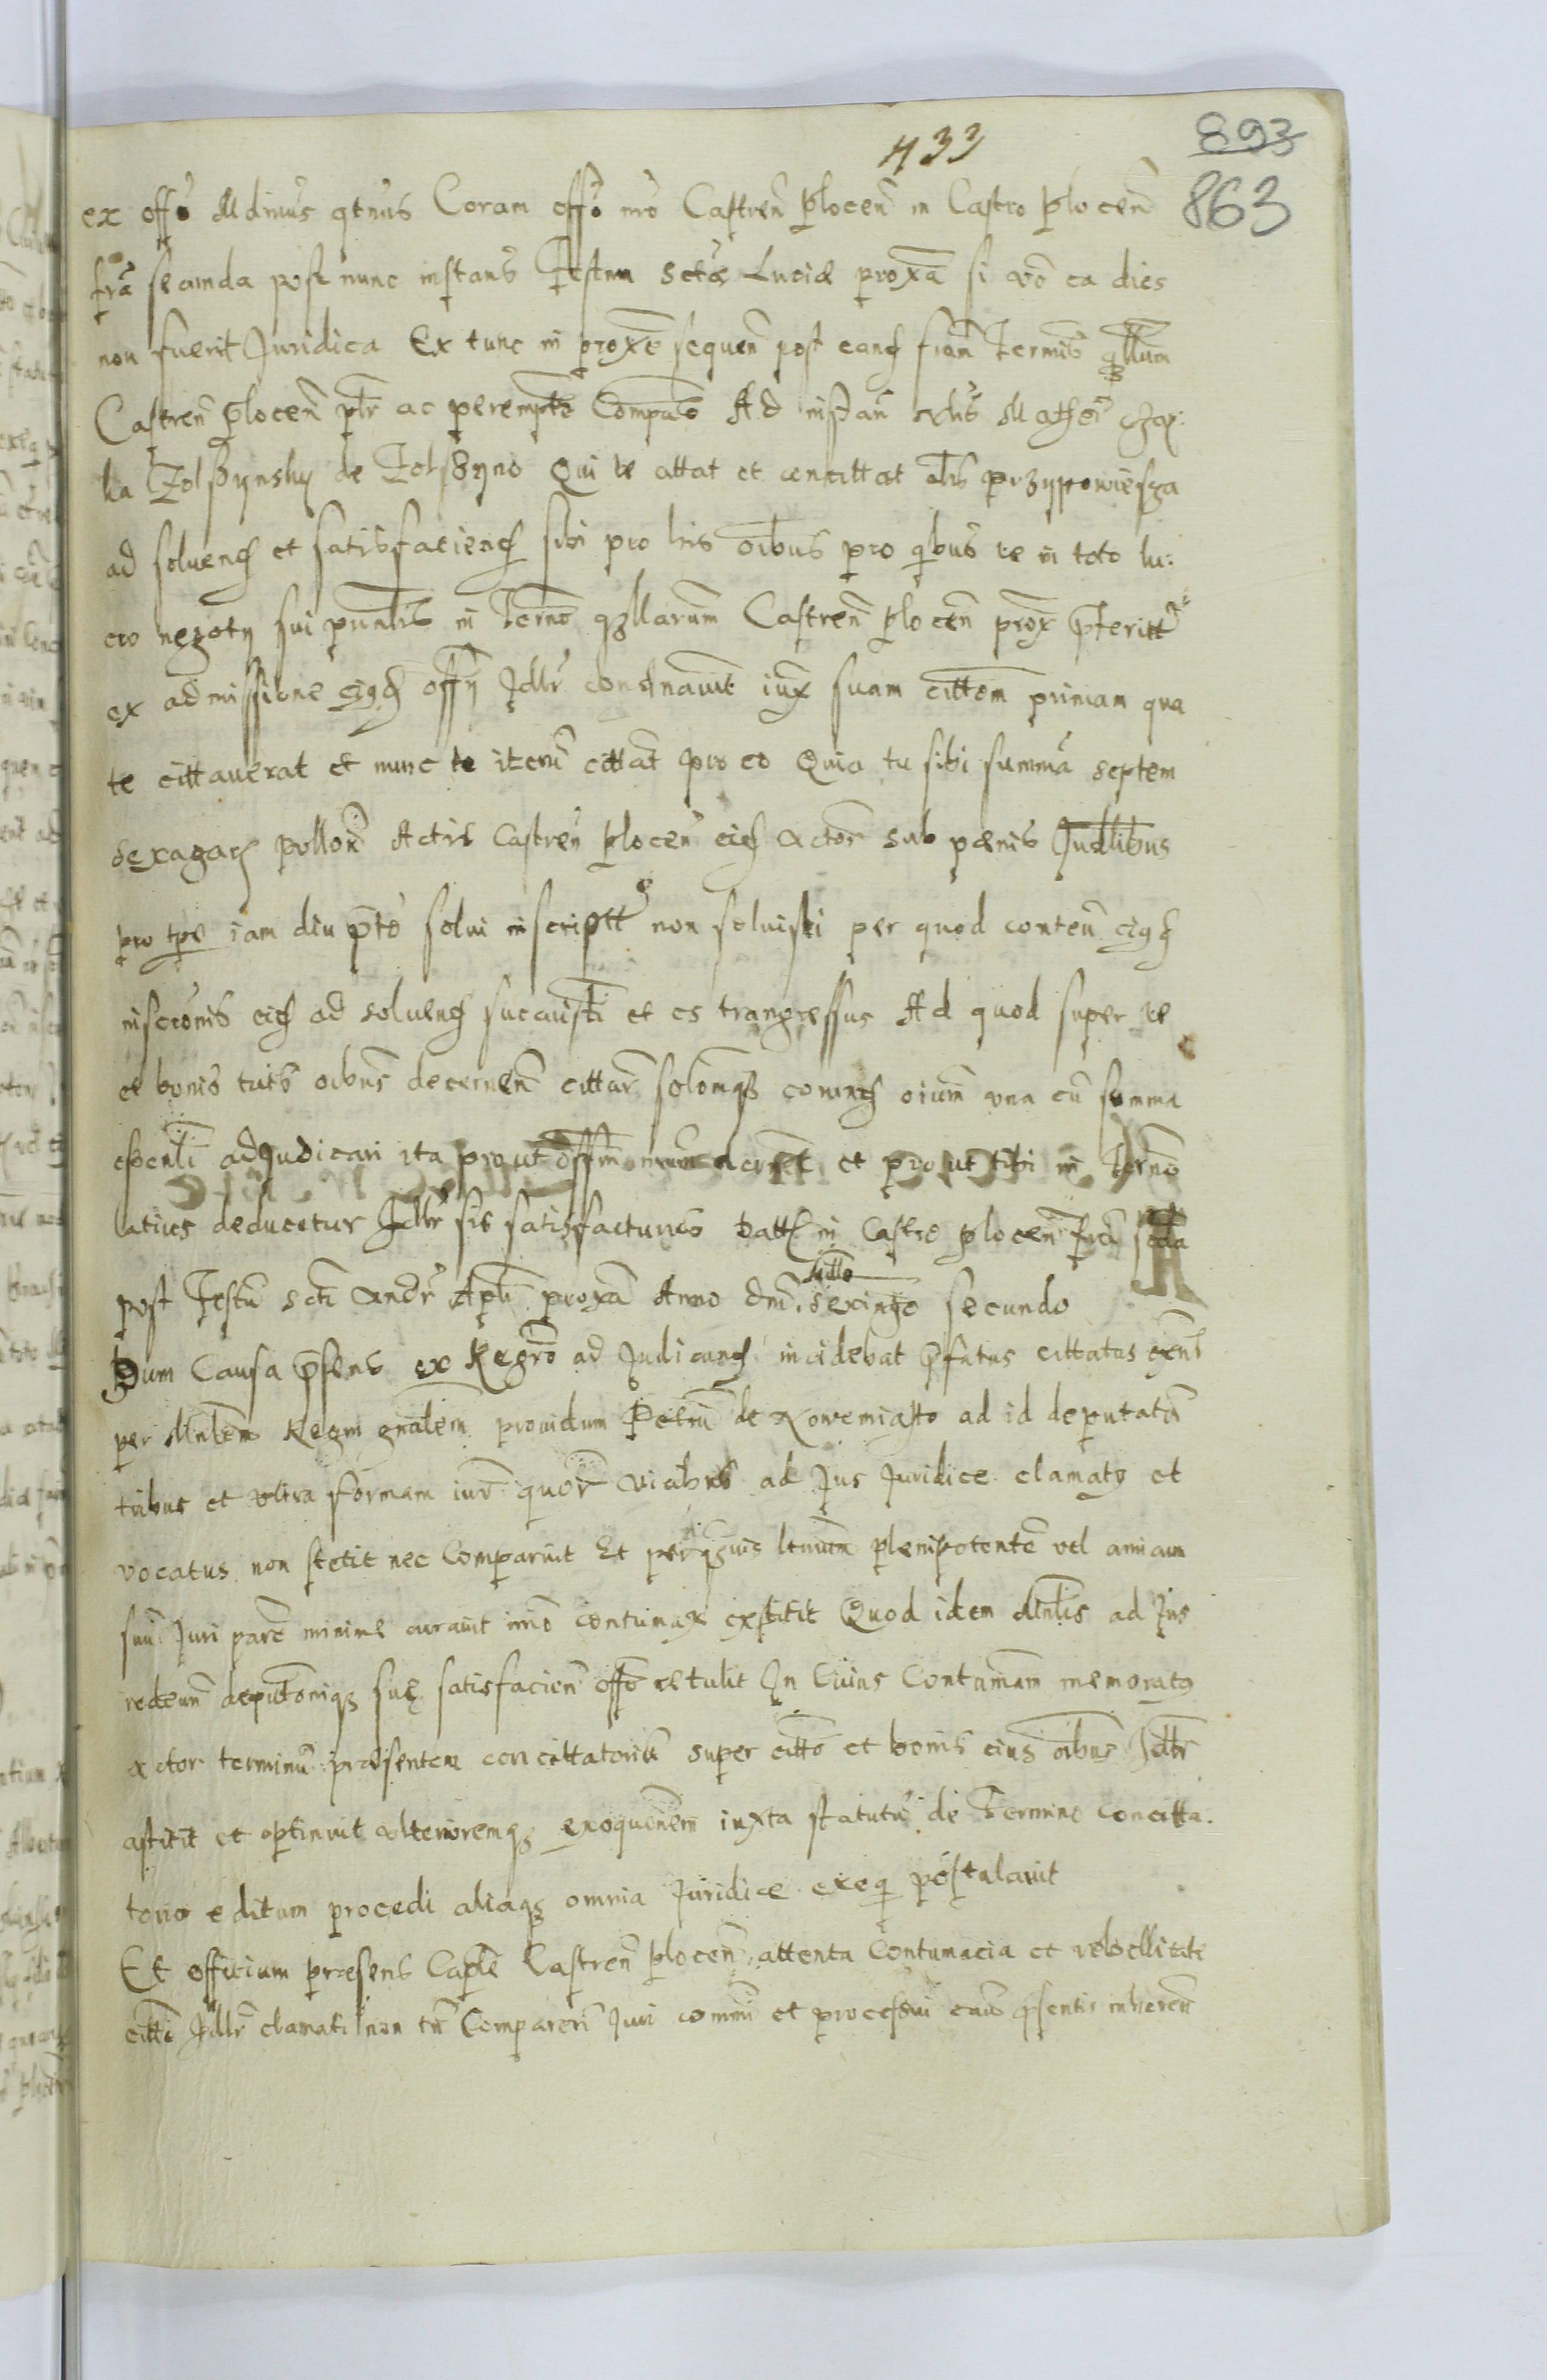 433
893
863
ex offo Mdmus qtnus Coram offo nro Castren plocen in Castro plocen
fria secunda post nunc instans Festum sctae Luciae proxa si vo ea dies
non fuerit Juridica Ex tunc in proxe sequen post eand friam Termis qllum
Castren plocen ptr ac perempte Compas Ad instan Mathei
ka Zolszynsky de Zolszyno Qui te attat et concittat als przypowiesza
ad soluend et satisfaciend sibi pro his oibus pro qbus te in toto lu:
cro negotij sui puntis in Termo qzllarum Castren plocen prox pterit
ex admissione eigd offij Jdlr condnauit iux suam cittem primam qua
te cittauerat et nunc te iteru cittat pro eo Quia tu sibi summa septem
sexagard pollor Actis Castren plocen eid actor sub paenis Judlibus
pro tpe iam diu pto solui inscriptt non soluisti per quod conten eigd
inscronis eid ad soluend sucauisti et es trangressus Ad quod super te
et bonis tuis oibus decernen cittar solomqz oium una cu summa
espenli adJudicari ita prout offm nrum decernet et prout tibi in Termo
latius deducetur Jdlr sis satisfacturus Datt in Castro plocen fria scda
post Festu scti Andr Apli proxa Anno dni Millo sexingo secundo
Dum Causa psens ex Regro ad Judicand incidebat pfatus cittatus
per Mnlem Regni gnalem prouidum Petru de Nowemiasto ad id deputatu
tribus et ultra formam iur quor viabus ad Jus Juridice clamatg et
vocatus non stetit nec Comparuit Et per qzuis ltimum plenipotente vel amicum
suu Juri pare minime curauit imo contumax exstitit Quod idem Mnlis ad Jus
redeun deputoniqz suę satisfacien offo retulit In Cuius Contumam memoratg
actor terminu praesentem concittatoriu super citto et bonis eius oibus Jdlr
astitit et optinuit ulterioremqz exequonem iuxta statutu de Termino concitta.
torio editum procedi aliaqz omnia Juridice exeq postulauit
Et officium praesens Caple Castren plocen attenta Contumacia et rebellitate
citti Jdlr clamati non tn Comparen Juri commi et processui causę psentis inheren